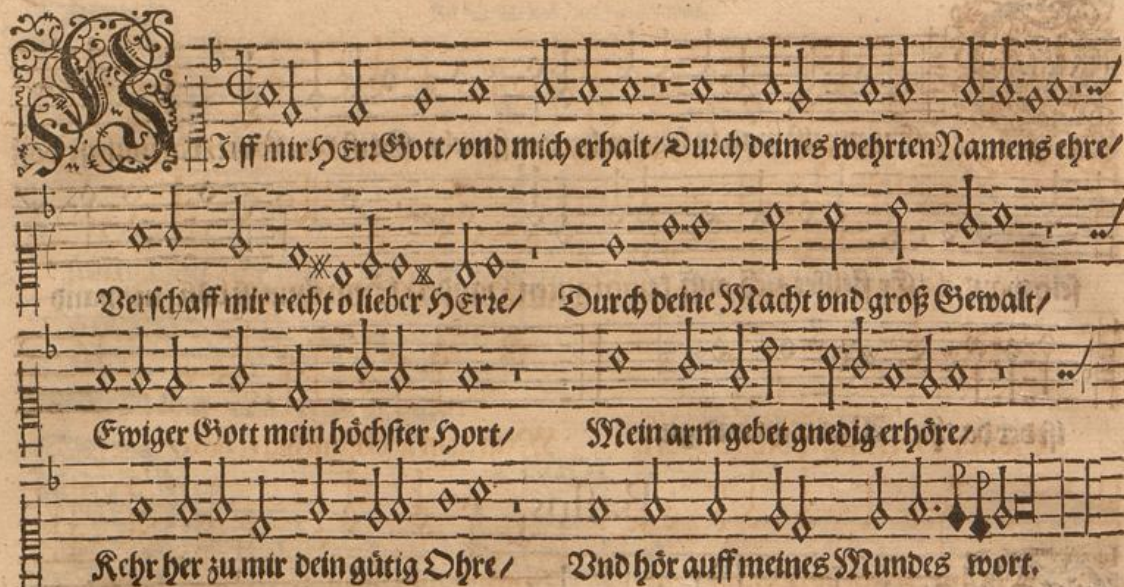 HIlff mir HErr Gott/vnd mich erhalt/Durch deines wehrten Namens ehre/
Verschaff mir recht o lieber HErre/ Durch deine Macht vnd groß Gewalt/
Ewiger Gott mein höchster Hort/ Mein arm gebet gnedig erhöre/
Kehr her zu mir dein gütig Ohre/ Vnd hör auff meines Mundes wort.